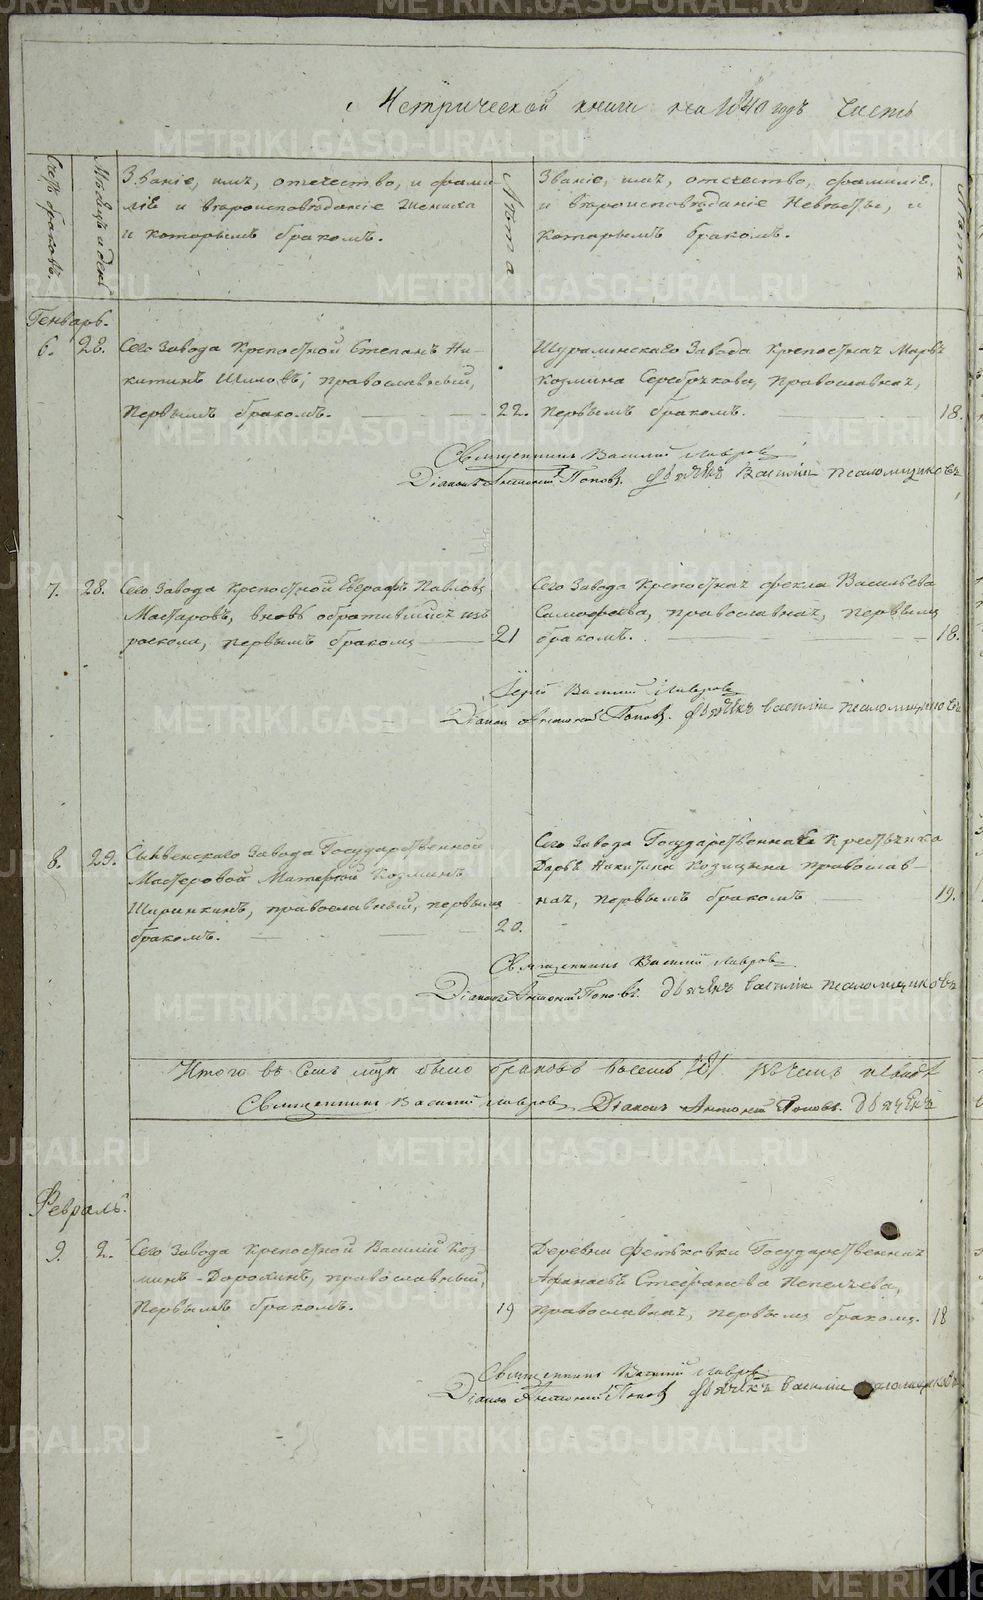 Метрической книги на 1840 годъ Часть
Счетъ браковъ.
Мѣсяцъ и день
Званіе, имя, отечество, и фами-
ліе и вѣроисповѣданіе Жениха
и которымъ бракомъ.
Лѣта
Званіе, имя, отечество, фамиліе,
и вѣроисповѣданіе Невѣсты, и
которымъ бракомъ.
Лѣта
Генварь.
6. 28. Сего Завода Крепостной Степанъ Ни-
китинъ Шиловъ, православный,
первымъ бракомъ. 22.
Шуралинскаго Завода Крепостная Марья
Козмина Серебрякова, православная,
первымъ бракомъ. 18.
Священникъ Василій Лавровъ
Діаконъ Антоній Поповъ. Дьячекъ Василій Псаломщиковъ
7. 28. Сего Завода Крепостной Евграфъ Павловъ
Мастеровъ, вновь обратившійся изъ
раскола, первымъ бракомъ 21
Сего Завода Крепостная Фекла Васильева
православная, первымъ
бракомъ. 18.
Іерей Василій Лавровъ
Діаконъ Антоній Поповъ. Дьячекъ Василій Псаломщиковъ
8. 29. Сылвенскаго Завода Государственной
Мастеровой Козминъ
Ширинкинъ, православный, первымъ
бракомъ. 20.
Сего Завода Государственная Крестьянка
Дарья Никитина Козицына православ-
ная, первымъ бракомъ 19.
Священникъ Василій Лавровъ
Діаконъ Антоній Поповъ. Дьячекъ Василій Псаломщиковъ
Итого въ Семъ было браковъ восемь /8/ въ чемъ
Священникъ Василій Лавровъ Діаконъ Антоній Поповъ. Дьячекъ
Февраль.
9. 2. Сего Завода Крепостной Василій Коз-
минъ Дорохинъ, православный,
первымъ бракомъ. 19
Деревни Фетьковки Государственная
Стефанова Пепеляева,
православная, первымъ бракомъ. 18
Священникъ Василій Лавровъ
Діаконъ Антоній Поповъ Дьячекъ Василій Псаломщиковъ
METRIKI.GASO-URAL.RU